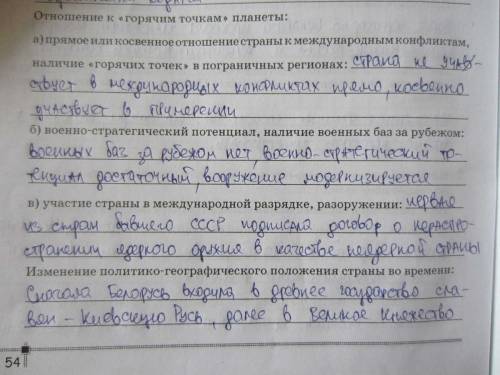 Отношение к «горячим точкам» планеты:
а) прямое или косвенное отношение страны к международным конфликтам,
наличие «горячих точек» в пограничных регионах: страна не участ-
ствует в международных конфликтах прямо, косвенно
участвует в примерении
б) военно-стратегический потенциал, наличие военных баз за рубежом:
Военных баз за рубежом нет, военно-стратегический по-
тенциал достаточный, вооружение модернизируется
в) участие страны в международной разрядке, разоружении: первые
из стран бывшего СССР подписала договор о нераспро-
странении ядерного оружия в качестве неядерной страны
Изменение политико-географического положения страны во времени:
Сначала Беларусь входила в древнее государство сла-
вян - Киевскую Русь, далее в Великое Княжество
54